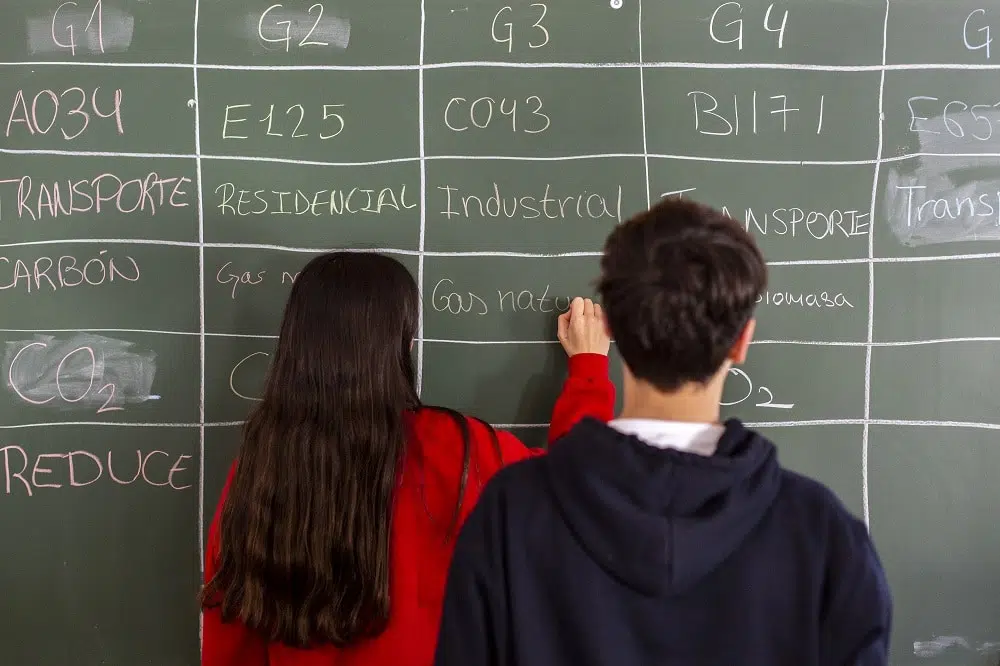 G1 G2 G3 G4 G
A034 E125 C043 B1171 E65
TRANSPORTE RESIDENCIAL Industrial T NSPORTE Trans
CARBÓN Gas n Gas natu iomasa
CO₂ C O₂
REDUCE